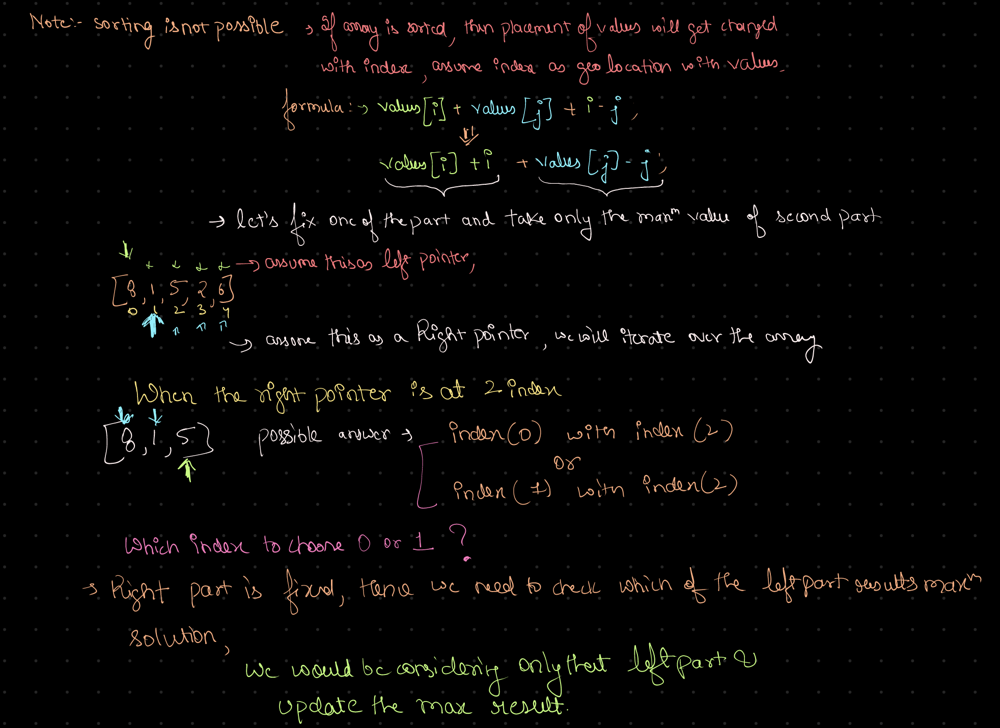 Note:- Sorting is not possible → If array is sorted, then placement of values will get changed
with index, assume index as geo location with values.
formula: → values[i] + values[j] + i - j,
values[i] + i + values[j] - j,
→ let's fix one of the part and take only the maxᵐ value of second part
→ assume this as left pointer,
[8, 1, 5, 2, 6]
0 1 2 3 4
→ assume this as a Right pointer, we will iterate over the array
When the right pointer is at 2 index
[8, 1, 5] possible answer → index(0) with index(2)
or
index(1) with index(2)
Which index to choose 0 or 1 ?
→ Right part is fixed, Hence we need to check which of the left part results maxᵐ
solution,
we would be considering only that left part &
update the max result.